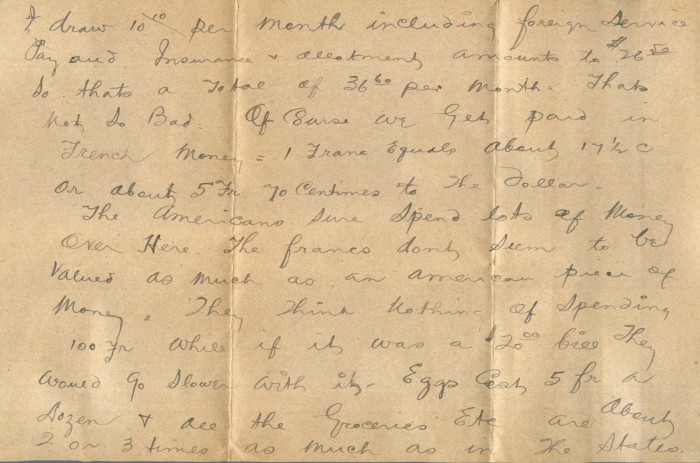 I draw 10 10 per month including foreign Service
Pay and Insurance & allotment amounts to $26 50
So thats a Total of 36 60 per Month. Thats
Not So Bad. Of Course we Get paid in
French Money = 1 Franc Equals About 17½ c
Or about 5 Fr 70 Centimes to The Dollar.
The Americans Sure Spend lots of Money
Over Here. The francs dont Seem to be
Valued as much as an american piece of
Money. They Think Nothing Of Spending
100 Fr While if it was a $20 00 bill They
Would Go Slower With it. Eggs Cost 5 fr a
Dozen & all the Groceries Etc are About
2 or 3 times as much as in The States.